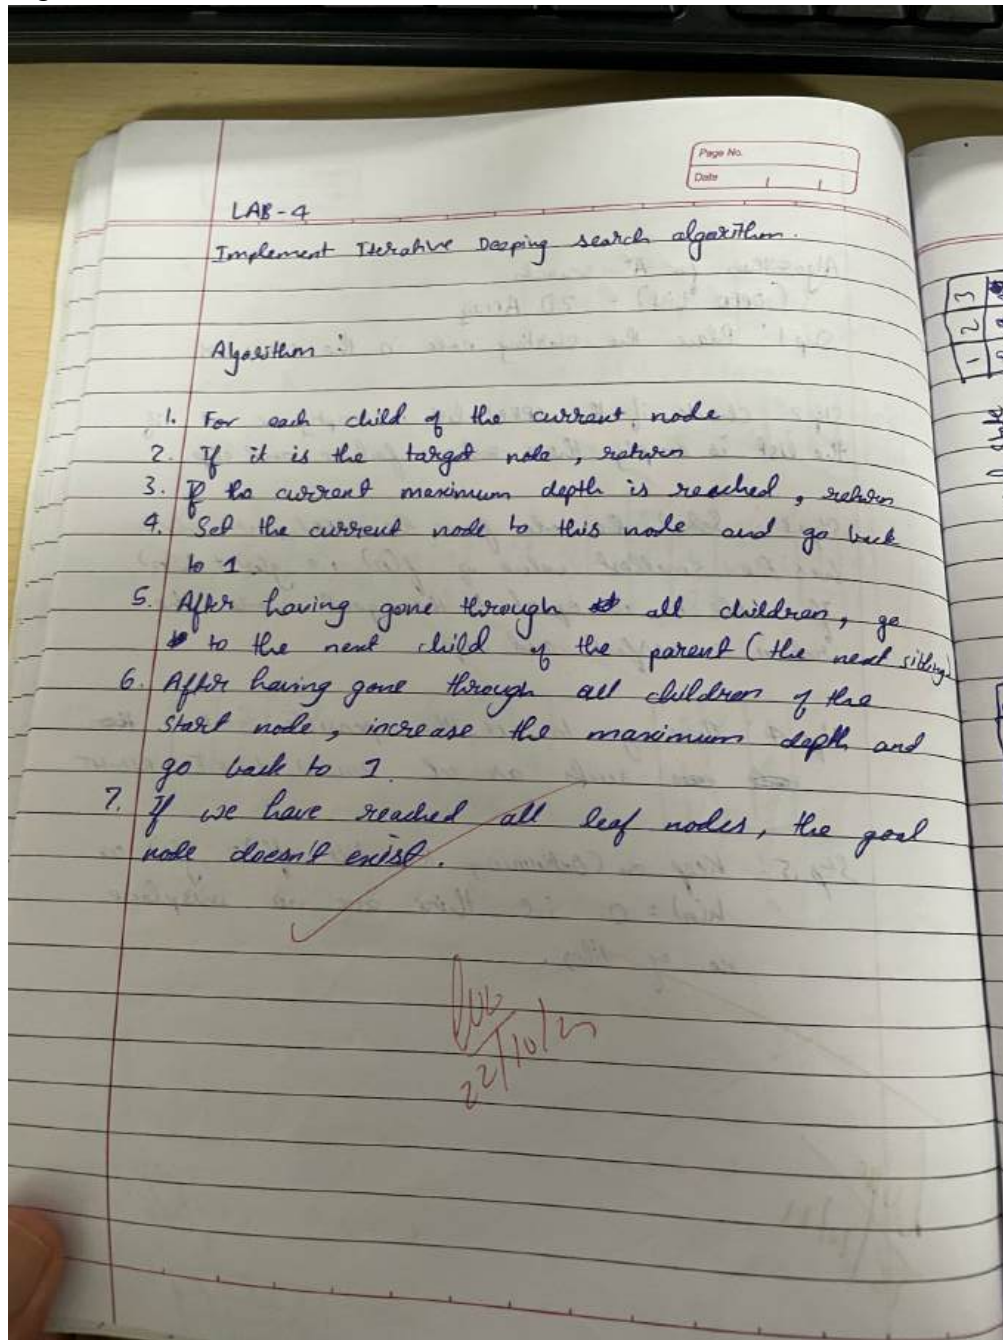 Page No.
Date
LAB-4
Implement Iterative Deeping search algorithm.
Algorithm :
1. For each child of the current node
2. If it is the target node, return
3. If the current maximum depth is reached, return
4. Set the current node to this node and go back
to 1.
5. After having gone through all children, go
to the next child of the parent (the next sibling)
6. After having gone through all children of the
start node, increase the maximum depth and
go back to 1.
7. If we have reached all leaf nodes, the goal
node doesn't exist.
22/10/2
1 2 3